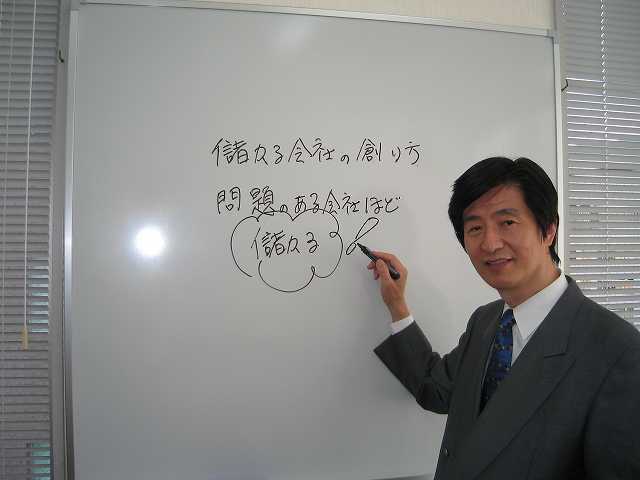 儲かる会社の創り方
問題のある会社ほど
儲かる!